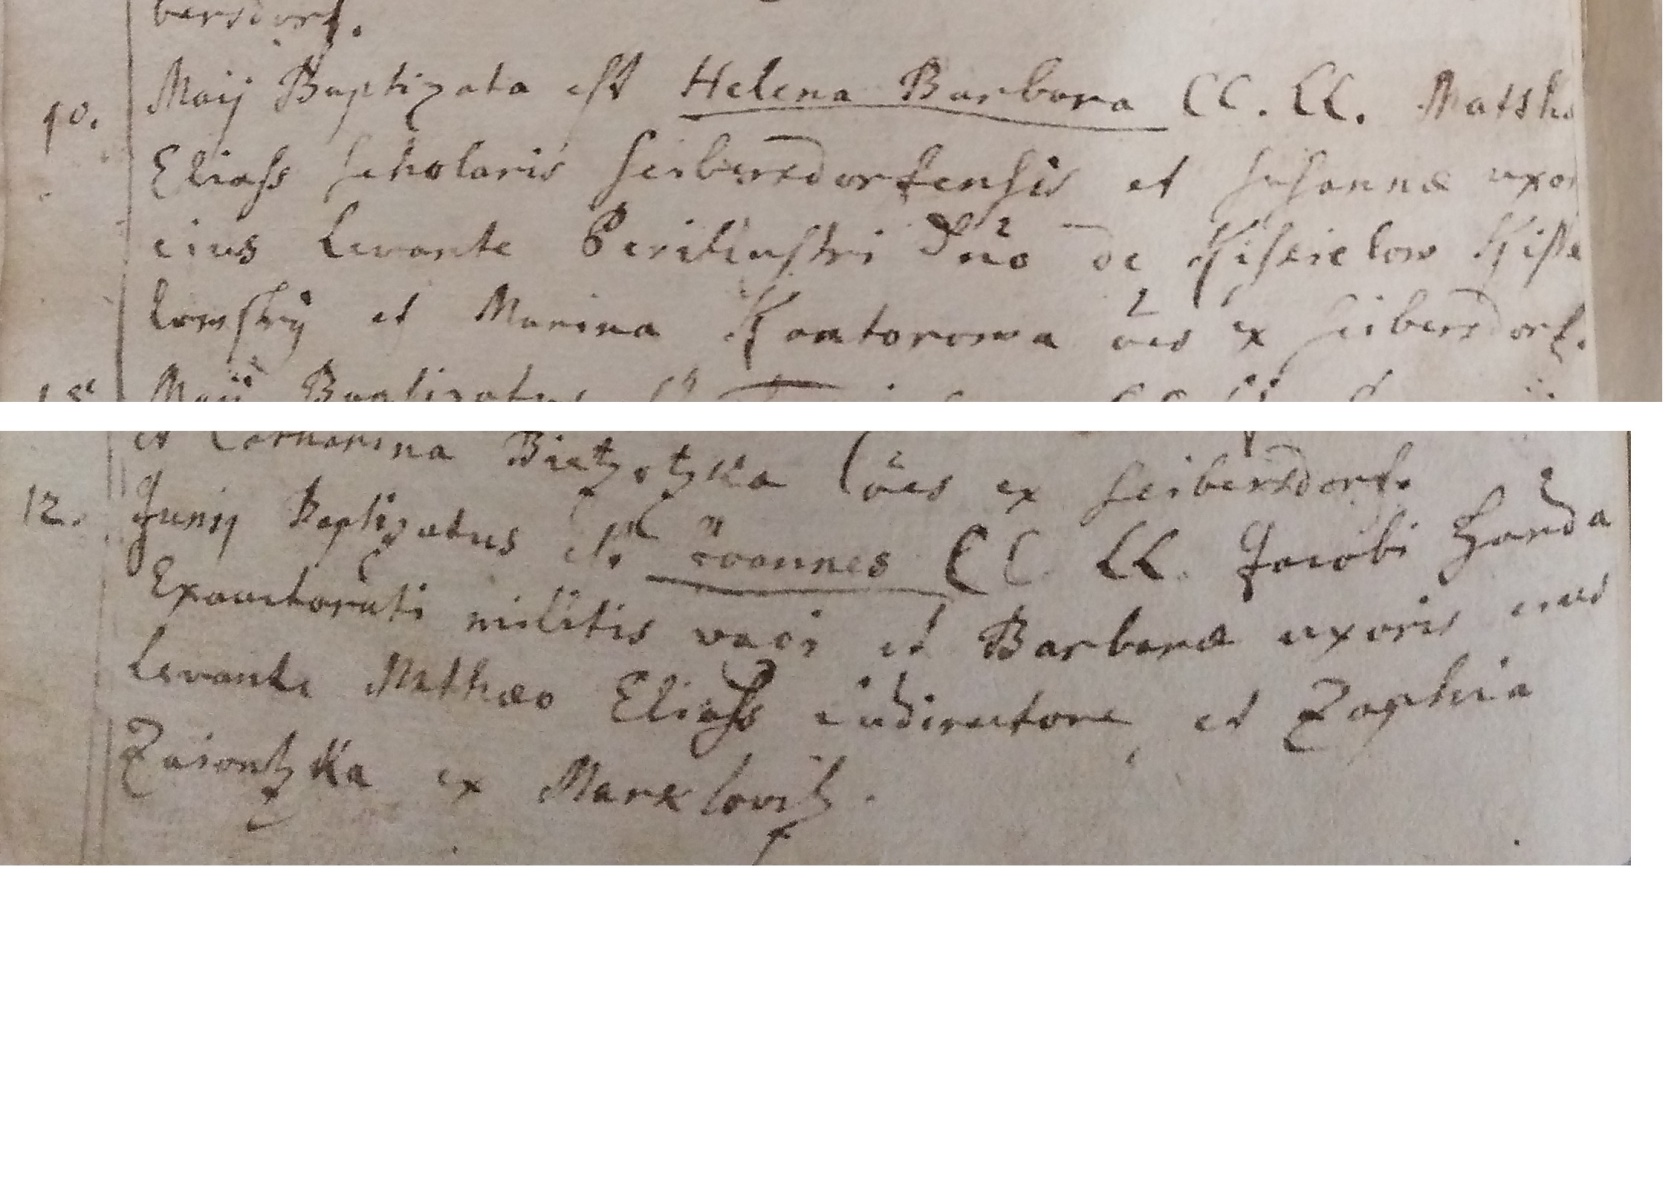 bersdorf.
10. Maij Baptizata est Helena Barbara CC. LL. Matth
Eliass scholaris seibersdorfensis et susannæ uxor
eius Levante Perillustri Dno de Kiseielow Kisse
lowskÿ et Marina Kantorowa oēs ex seibersdorf.
Maij Baptizatus
et Catharina Bietzotzka oēs ex seibersdorf.
12. Junij Baptizatus est Joannes CC LL. Jacobi
Exauctorati militis vaci et Barbaræ uxoris eius
Levante Mathæo Eliass et Zophia
Zaiontzka ex Marklovitz.